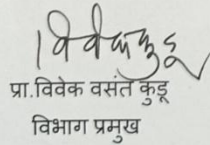 विवेककुडू
प्रा.विवेक वसंत कुडू
विभाग प्रमुख